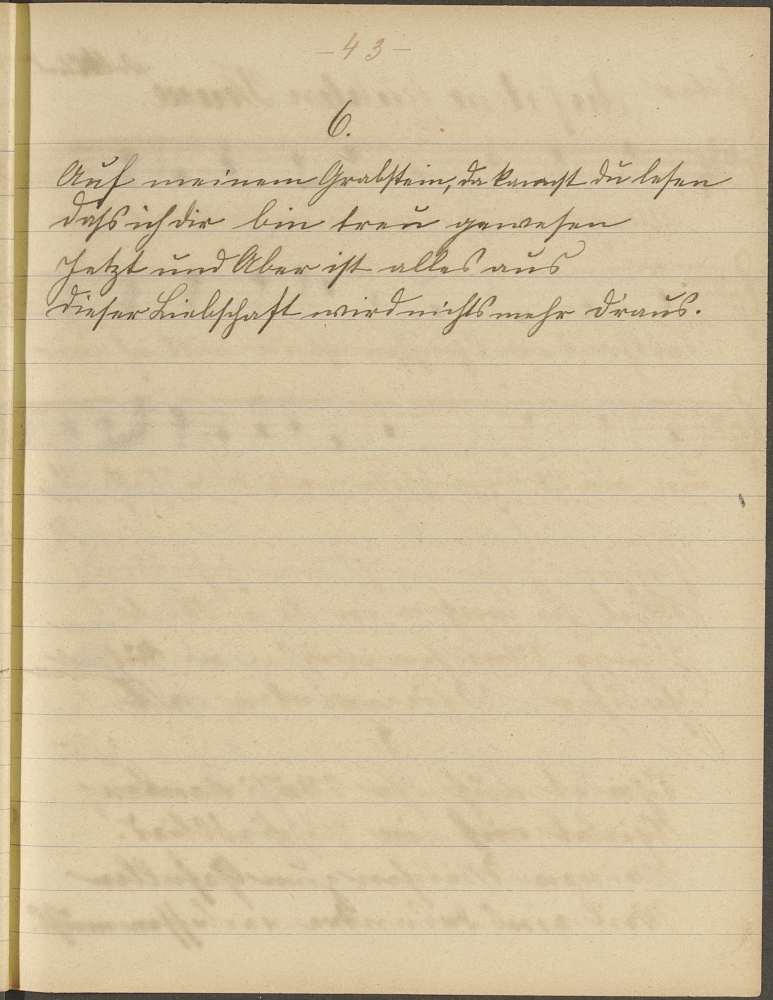 - 43 -
6.
Auf meinem Grabstein, da kannst du lesen
dass ich dir bin treu gewesen
Jetzt und Aber ist alles aus
dieser Liebschaft wird nichts mehr d'raus.